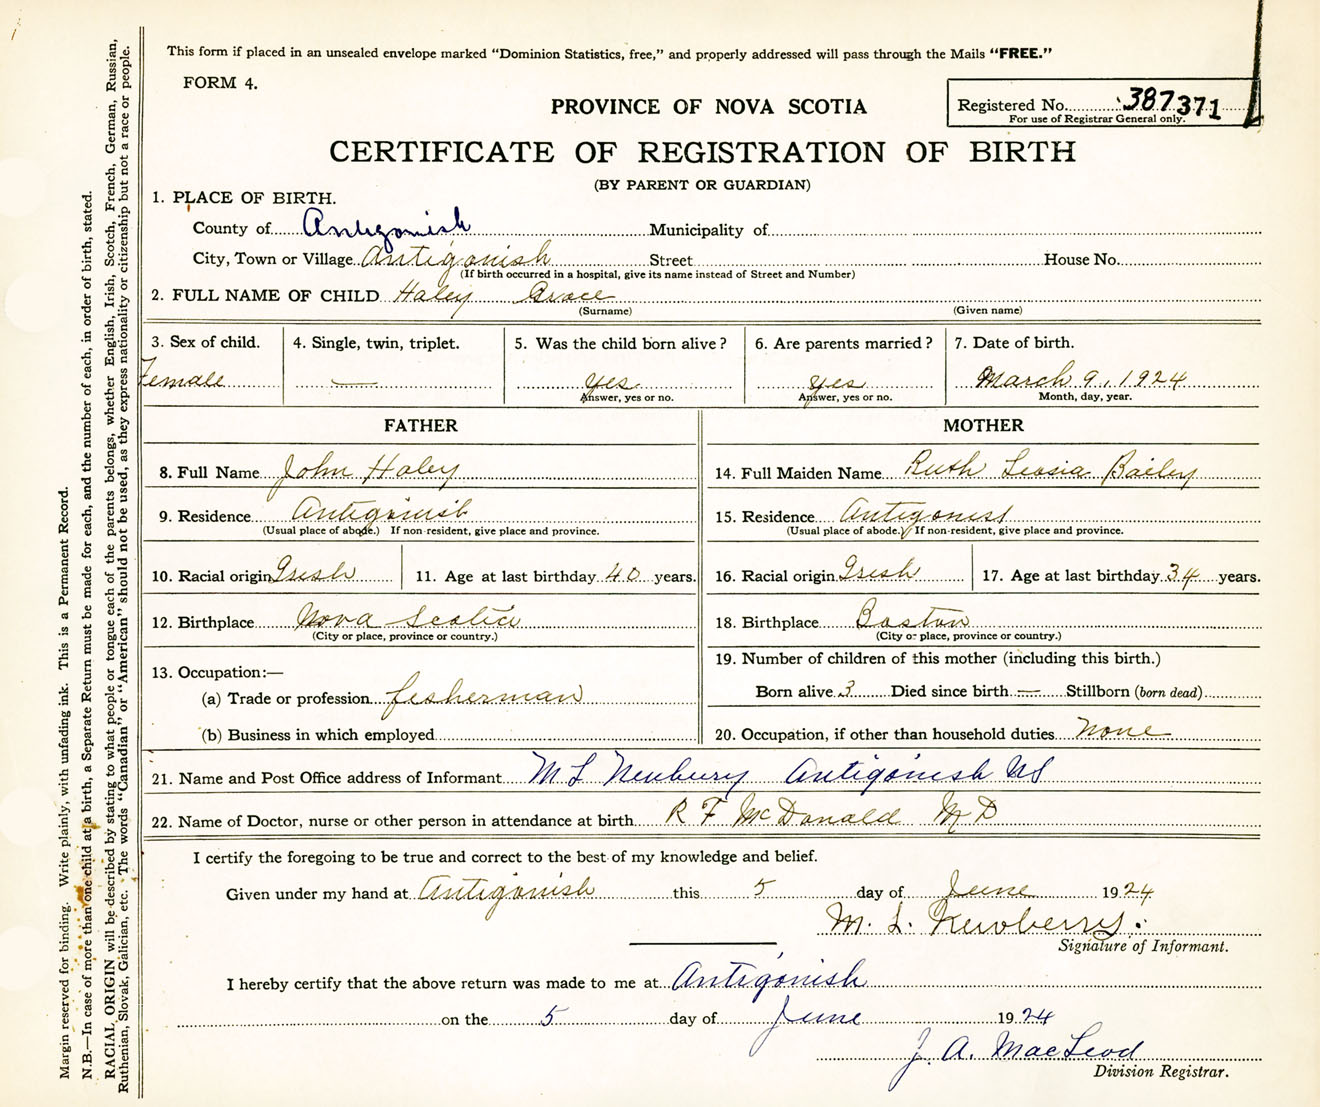 This form if placed in an unsealed envelope marked "Dominion Statistics, free," and properly addressed will pass through the Mails "FREE."
FORM 4.
Registered No. 387371
For use of Registrar General only.
PROVINCE OF NOVA SCOTIA
CERTIFICATE OF REGISTRATION OF BIRTH
(BY PARENT OR GUARDIAN)
1. PLACE OF BIRTH.
County of Antigonish Municipality of
City, Town or Village Antigonish Street House No.
(If birth occurred in a hospital, give its name instead of Street and Number)
2. FULL NAME OF CHILD Haley Grace
(Surname) (Given name)
3. Sex of child. 4. Single, twin, triplet. 5. Was the child born alive? 6. Are parents married? 7. Date of birth.
Female — yes yes March 9, 1924
Answer, yes or no. Answer, yes or no. Month, day, year.
FATHER
8. Full Name John Haley
9. Residence Antigonish
(Usual place of abode.) If non-resident, give place and province.
10. Racial origin Irish 11. Age at last birthday 40 years.
12. Birthplace Nova Scotia
(City or place, province or country.)
13. Occupation:—
(a) Trade or profession fisherman
(b) Business in which employed
MOTHER
14. Full Maiden Name Ruth Bailey
15. Residence Antigonish
(Usual place of abode.) If non-resident, give place and province.
16. Racial origin Irish 17. Age at last birthday 34 years.
18. Birthplace Boston
(City or place, province or country.)
19. Number of children of this mother (including this birth.)
Born alive 3 Died since birth — Stillborn (born dead)
20. Occupation, if other than household duties None
21. Name and Post Office address of Informant M L Newbury Antigonish NS
22. Name of Doctor, nurse or other person in attendance at birth R F McDonald MD
I certify the foregoing to be true and correct to the best of my knowledge and belief.
Given under my hand at Antigonish this 5 day of June 1924
M. L. Newberry.
Signature of Informant.
I hereby certify that the above return was made to me at Antigonish
on the 5 day of June 1924
J. A. MacLeod
Division Registrar.
Margin reserved for binding. Write plainly, with unfading ink. This is a Permanent Record.
N.B.—In case of more than one child at a birth, a Separate Return must be made for each, and the number of each, in order of birth, stated.
RACIAL ORIGIN will be described by stating to what people or tongue each of the parents belongs, whether English, Irish, Scotch, French, German, Russian,
Ruthenian, Slovak, Galician, etc. The words "Canadian" or "American" should not be used, as they express nationality or citizenship but not a race or people.